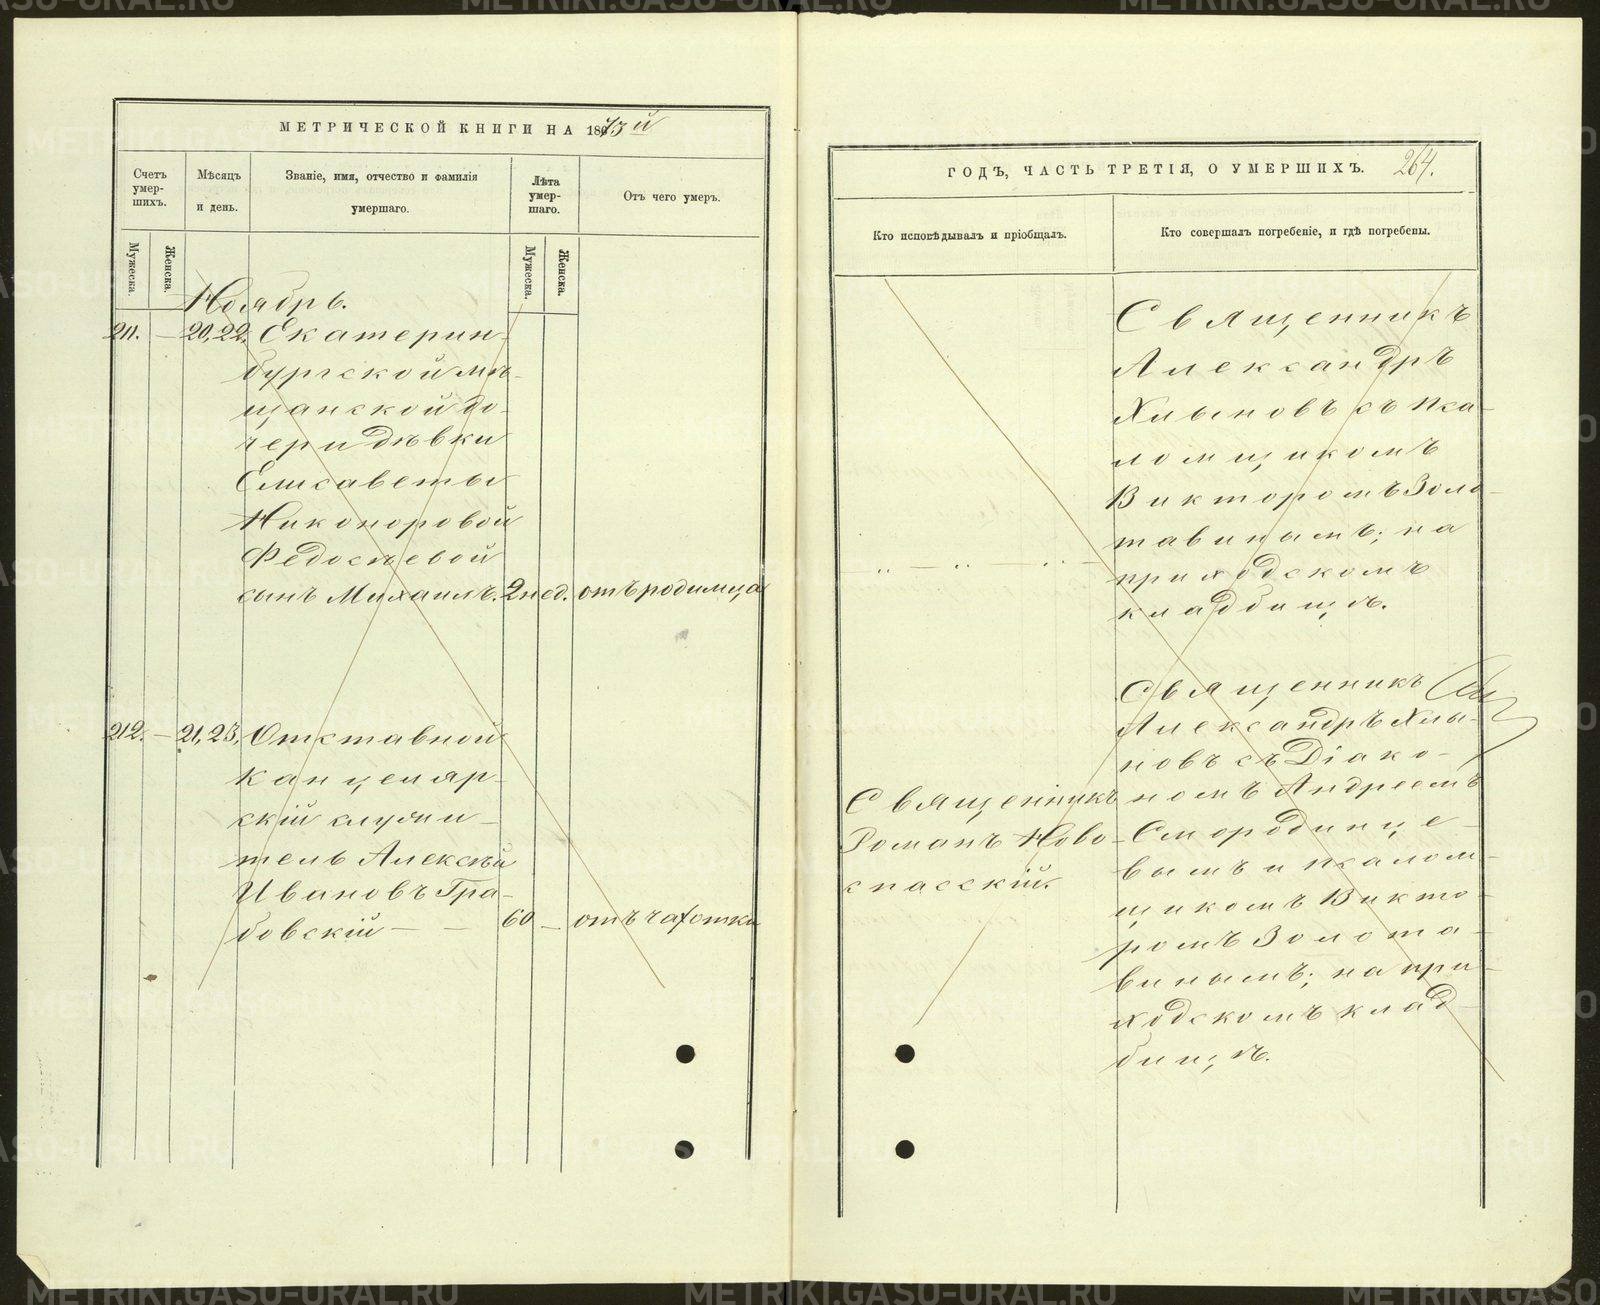 МЕТРИЧЕСКОЙ КНИГИ НА 1873й
Счетъ умер-шихъ.
Мужеска.
Женска.
Мѣсяцъ и день.
Званіе, имя, отчество и фамилія умершаго.
Лѣта умер-шаго.
Мужеска.
Женска.
Отъ чего умеръ.
Ноябрь.
211. — 20, 22. Екатерин-
бургской мѣ-
щанской до-
чери дѣвки
Елисаветы
Никоноровой
Федосѣевой
сынъ Михаилъ. 2 нед. отъ родимца
212. — 21, 23. Отставной
канцеляр-
скій служи-
тель Алексѣй
Ивановъ Гра-
бовскій — — 60 — отъ чахотки
ГОДЪ, ЧАСТЬ ТРЕТІЯ, О УМЕРШИХЪ. 264.
Кто исповѣдывалъ и пріобщалъ.
Кто совершалъ погребеніе, и гдѣ погребены.
Священникъ
Александръ
Хлыновъ съ пса-
ломщикомъ
Викторомъ Золо-
тавинымъ; на
— „ — „ — „ — приходскомъ
кладбищѣ.
Священникъ
Александръ Хлы-
новъ съ Діако-
номъ Андреемъ
Смородинце-
вымъ и псалом-
щикомъ Викто-
ромъ Золота-
винымъ; на при-
ходскомъ клад-
бищѣ.
Священникъ
Романъ Ново-
спасскій.
METRIKI.GASO-URAL.RU